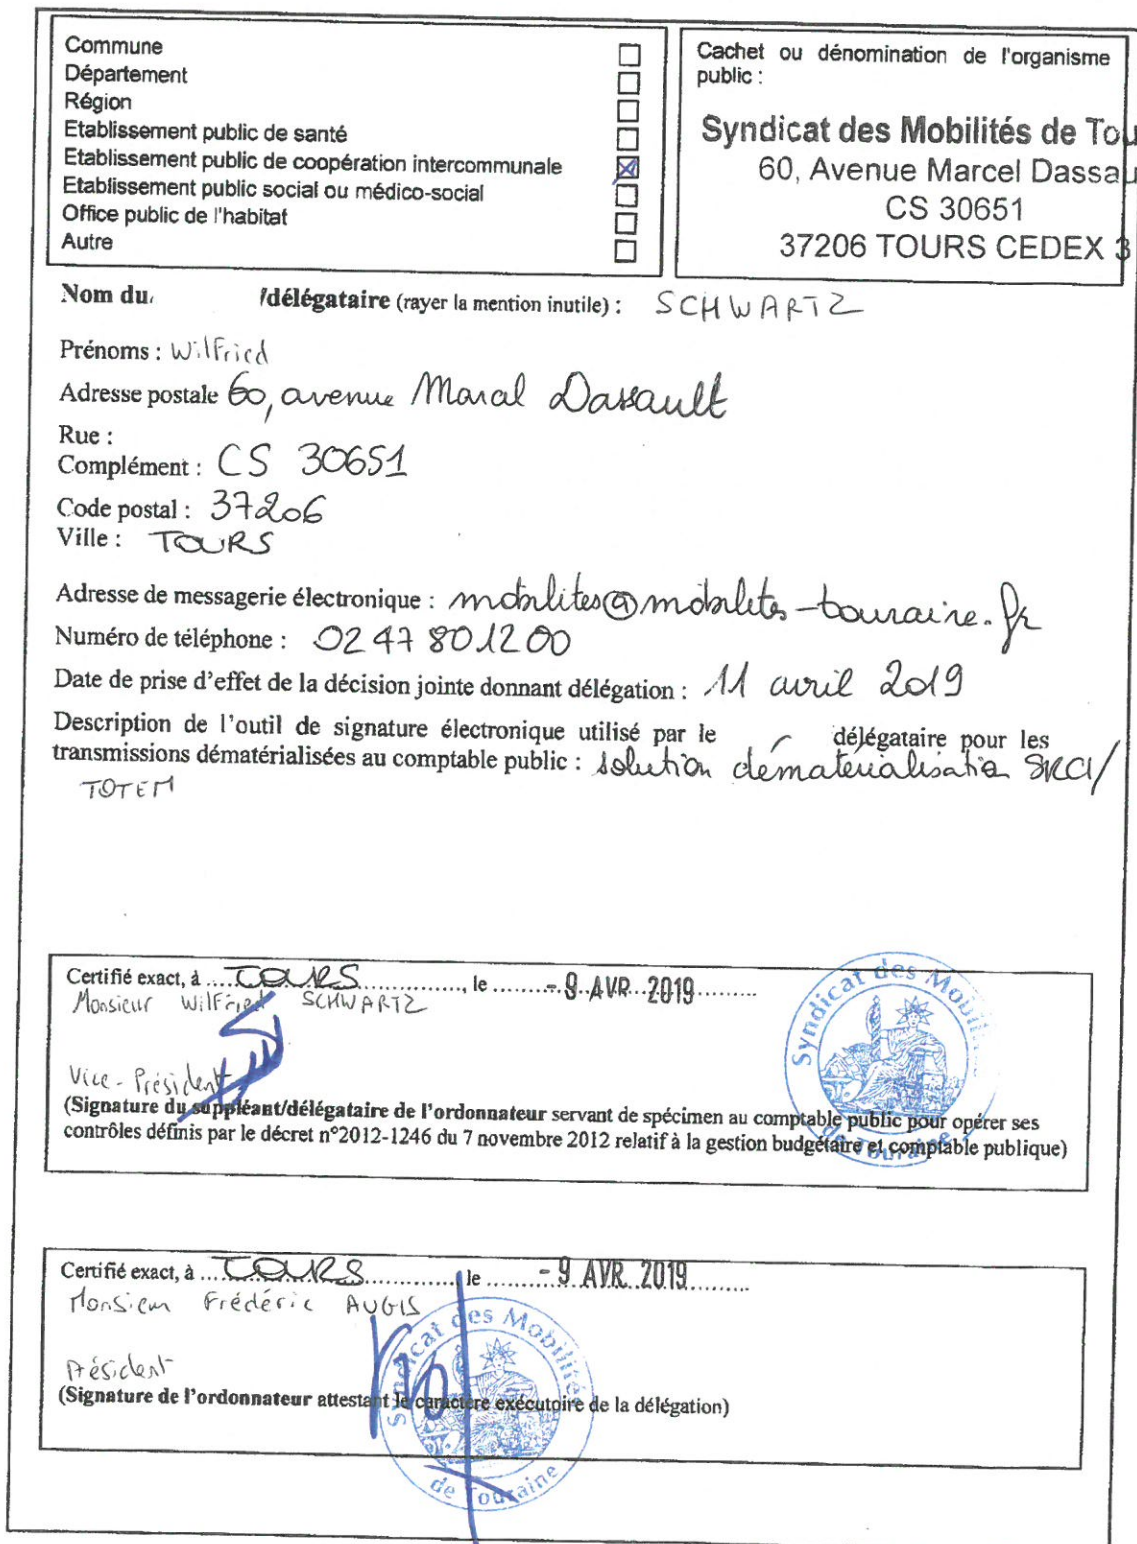 Commune
Département
Région
Etablissement public de santé
Etablissement public de coopération intercommunale
Etablissement public social ou médico-social
Office public de l'habitat
Autre
Cachet ou dénomination de l'organisme
public :
Syndicat des Mobilités de Tou
60, Avenue Marcel Dassau
CS 30651
37206 TOURS CEDEX 3
Nom du /délégataire (rayer la mention inutile) : SCHWARTZ
Prénoms : Wilfried
Adresse postale 60, avenue Marcel Dassault
Rue :
Complément : CS 30651
Code postal : 37206
Ville : TOURS
Adresse de messagerie électronique : mobilites@mobilites-touraine.fr
Numéro de téléphone : 02 47 80 12 00
Date de prise d'effet de la décision jointe donnant délégation : 11 avril 2019
Description de l'outil de signature électronique utilisé par le délégataire pour les
transmissions dématérialisées au comptable public : solution dématérialisation SRCI/
TOTEM
Certifié exact, à .... TOURS ................, le ......... - 9 AVR. 2019 .........
Monsieur Wilfried SCHWARTZ
Vice-Président
(Signature du suppléant/délégataire de l'ordonnateur servant de spécimen au comptable public pour opérer ses
contrôles définis par le décret n°2012-1246 du 7 novembre 2012 relatif à la gestion budgétaire et comptable publique)
Syndicat des Mobili
de Touraine
Certifié exact, à ... TOURS ................ le ......... - 9 AVR. 2019 .........
Monsieur Frédéric AUGIS
Président
(Signature de l'ordonnateur attestant le caractère exécutoire de la délégation)
Syndicat des Mobilités
de Touraine